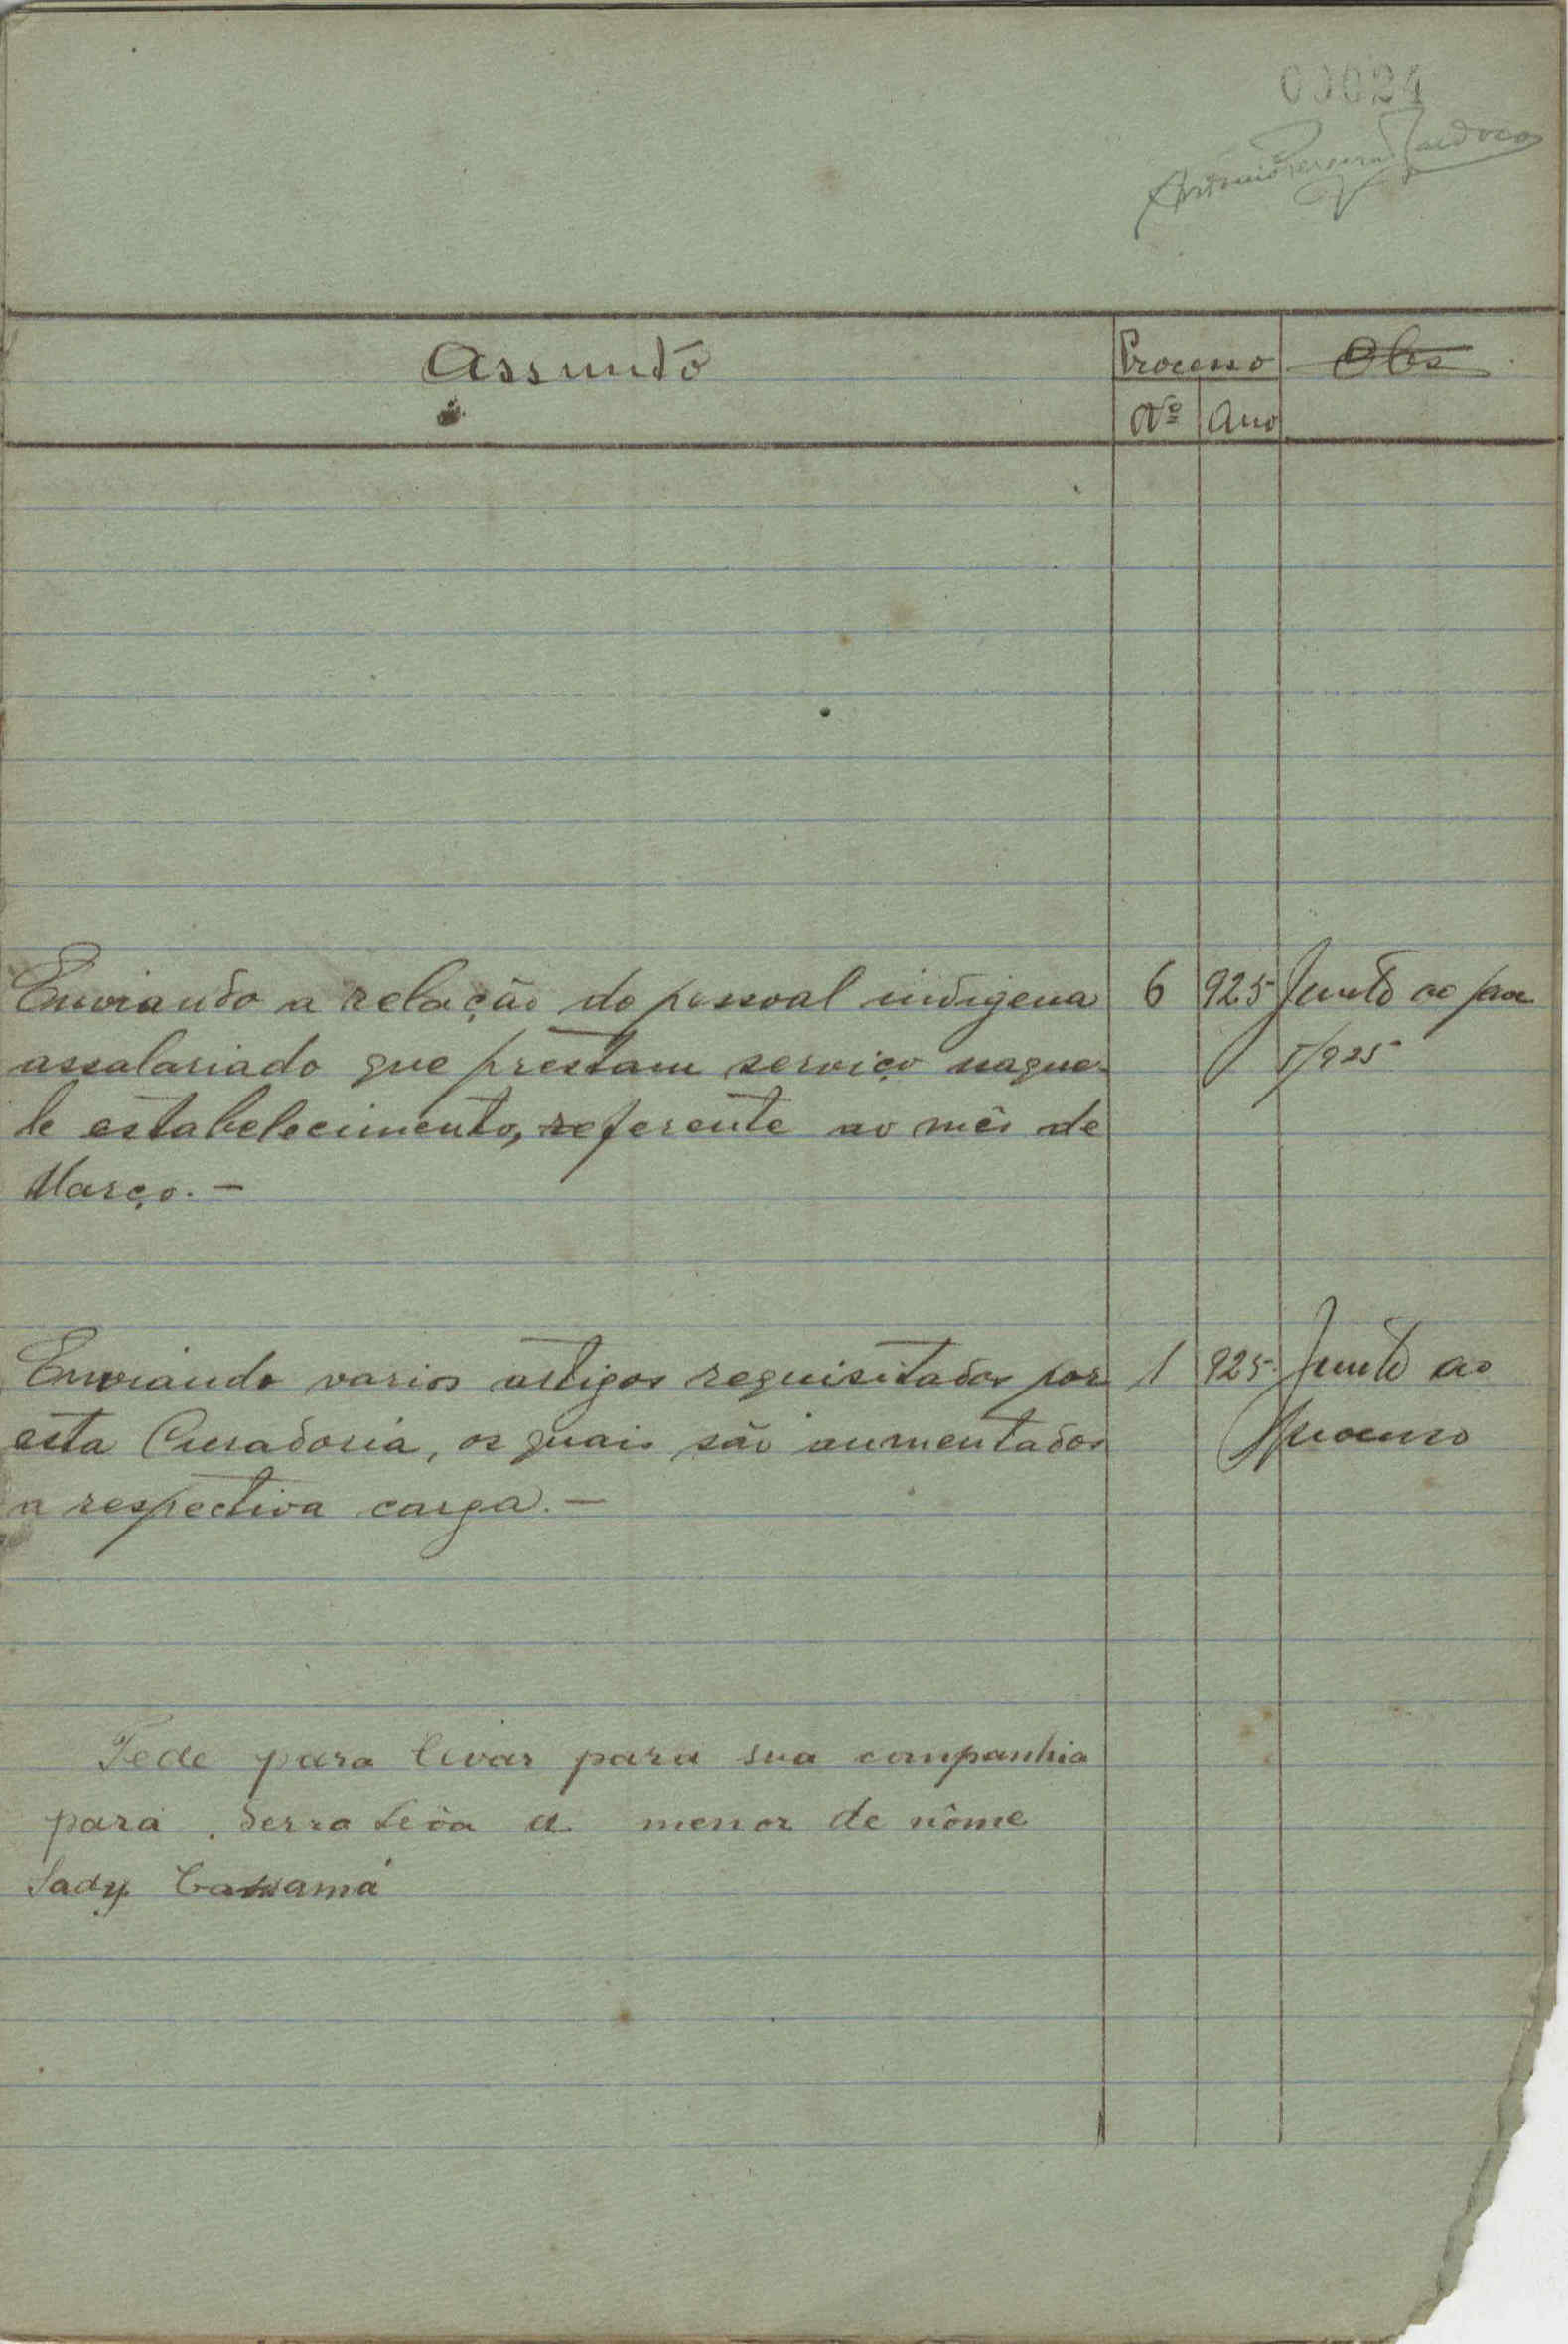 00024
Antonio Pereira Cardoso
Assunto
Processo
Obs
Nº
Ano
Enviando a relação do pessoal indigena 6 925 Junto ao
assalariado que prestam serviço naque- 5/925
le estabelecimento, referente ao mês de
Março. —
Enviando varios artigos requisitados por 1 925 Junto ao
esta Curadoria, os quais são aumentados processo
a respectiva carga. —
Pede para levar para sua companhia
para Serra Leôa a menor de nôme
Sady